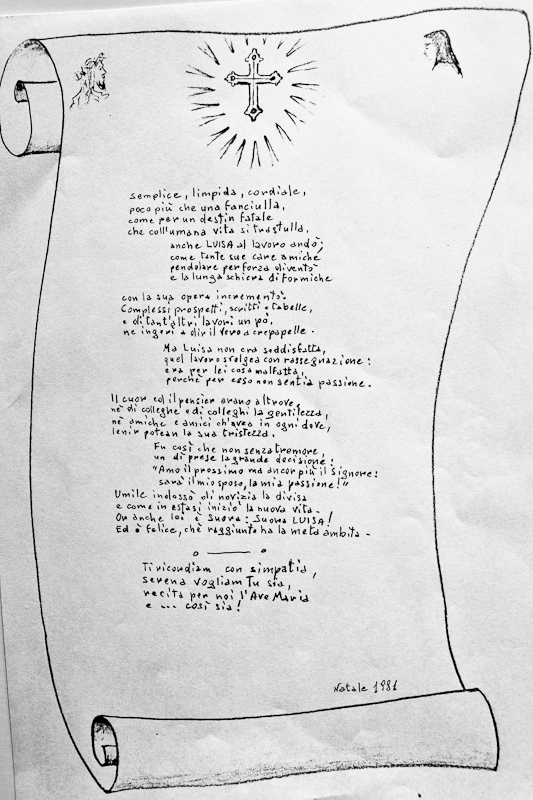 semplice, limpida, cordiale,
poco più che una fanciulla,
come per un destin fatale
che coll'umana vita si trastulla,
anche LUISA al lavoro andò;
come tante sue care amiche
pendolare per forza diventò
e la lunga schiera di formiche
con la sua opera incrementò.
Complessi prospetti, scritti e tabelle,
e di tant'altri lavori un po',
ne ingerì a dir il vero a crepapelle.
Ma Luisa non era soddisfatta,
quel lavoro svolgea con rassegnazione:
era per lei cosa malfatta,
perchè per esso non sentia passione.
Il cuor ed il pensier erano altrove,
nè di colleghe e di colleghi la gentilezza,
nè amiche e amici ch'avea in ogni dove,
lenir potean la sua tristezza.
Fu così che non senza tremore,
un dì prese la grande decisione:
"Amo il prossimo ma ancor più il Signore:
sarà il mio sposo, la mia passione!"
Umile indossò di novizia la divisa
e come in estasi iniziò la nuova vita.
Or anche lei è Suora: Suora LUISA!
Ed è felice, chè raggiunto ha la meta ambita.
Ti ricordiam con simpatia,
serena vogliam Tu sia,
recita per noi l'Ave Maria
e ... così sia!
Natale 1981